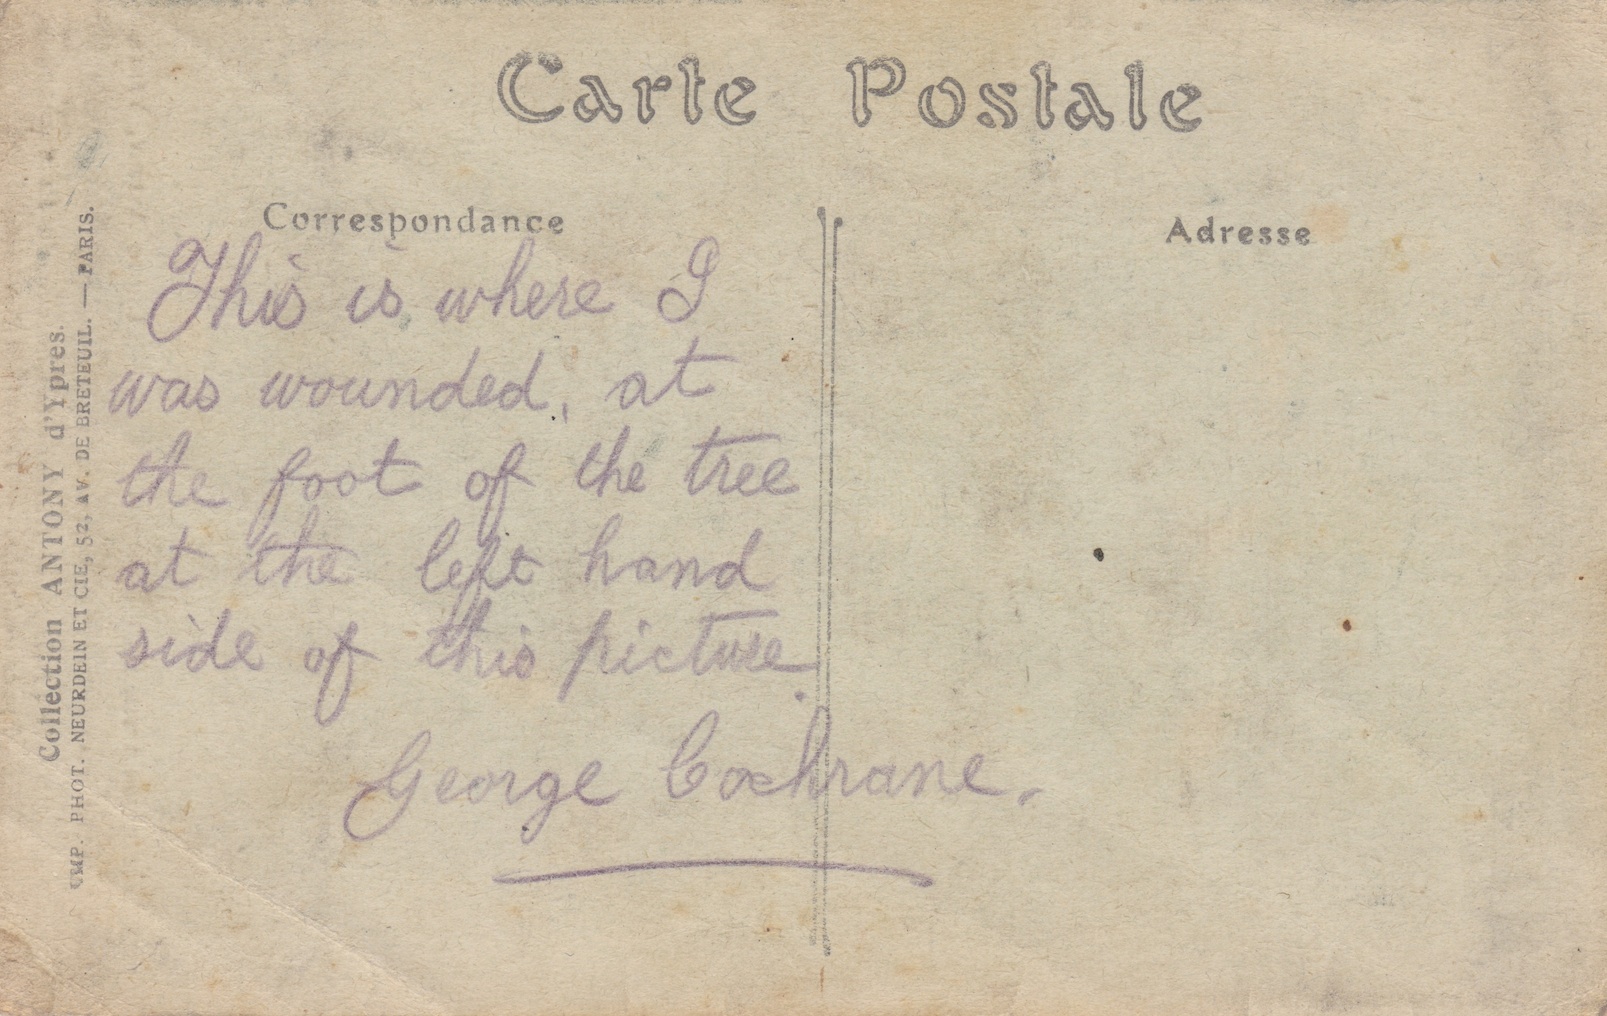 Carte Postale
Correspondance
Adresse
This is where I
was wounded, at
the foot of the tree
at the left hand
side of this picture.
George Cochrane.
Collection ANTONY d'Ypres.
IMP. PHOT. NEURDEIN ET CIE, 52, AV. DE BRETEUIL. — PARIS.